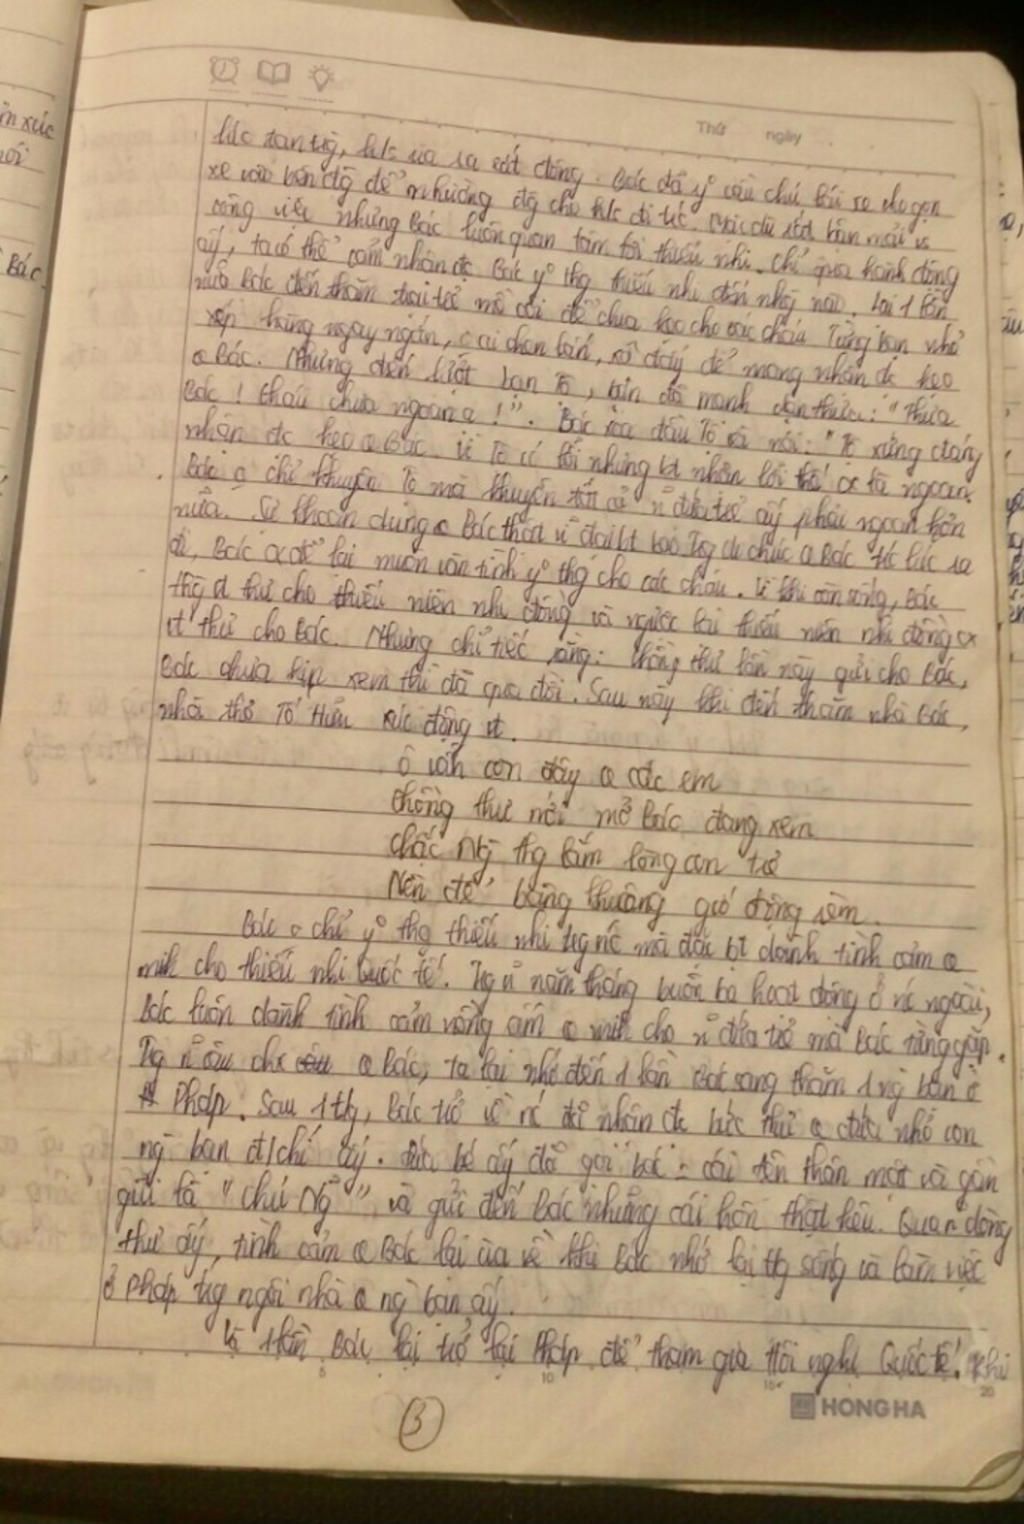 Thứ ngày
lúc tan trg, hs ùa ra rất đông. Bác đã y° cầu chú lái xe cho gọn
xe vào bên đg để nhường đg cho hs đi trc. Mặc dù rất bận mải vs
công việc nhưng Bác luôn quan tâm tới thiếu nhi. Chỉ qua hành động
ấy, ta có thể cảm nhận đc Bác y° thg thiếu nhi đến nhg nào. Lại 1 lần
nữa Bác đến thăm trại trẻ mồ côi để chia kẹo cho các cháu. Từng bạn nhỏ
xếp hàng ngay ngắn, để mong nhận đc kẹo
o Bác. Nhưng đến lượt bạn Tộ, bạn đã mạnh dạn thưa: "Thưa
Bác! Cháu chưa ngoan ạ!". Bác xoa đầu Tộ và nói: "Tộ xứng đáng
nhận đc kẹo o Bác. Vì Tộ có lỗi nhưng bt nhận lỗi thế là ngoan.
Bác o chỉ khuyên Tộ mà khuyên tất cả n~ đứa trẻ ấy phải ngoan hơn
nữa. Sự khoan dung o Bác thật vĩ đại bt bao. Trg di chúc o Bác trc lúc ra
đi, Bác để lại muôn vàn tình y° thg cho các cháu. Vì khi còn sống, Bác
thg vt thư cho thiếu niên nhi đồng và ngược lại thiếu niên nhi đồng
vt thư cho Bác. Nhưng chỉ tiếc rằng: Chồng thư lần này gửi cho Bác,
Bác chưa kịp xem thì đã qua đời. Sau này khi đến thăm nhà Bác,
nhà thơ Tố Hữu xúc động vt.
Ô vẫn còn đây o các em
Chồng thư mới mở Bác đang xem
Chắc Ng thg lắm lòng con trẻ
Nên để bâng khuâng gió động rèm.
Bác o chỉ y° thg thiếu nhi trg nc mà đặc bt dành tình cảm o
mình cho thiếu nhi Quốc tế. Trg n~ năm tháng buôn ba hoạt động ở nc ngoài,
Bác luôn dành tình cảm nồng ấm o mình cho n~ đứa trẻ mà Bác từng gặp.
Trg n~ câu chx o Bác, ta lại nhớ đến 1 lần Bác sang thăm 1 ng bạn ở
Pháp. Sau 1 thg, Bác trở về nc để nhận đc bức thư o đứa nhỏ con
ng bạn đ/chí ấy. Đứa bé ấy đã gọi Bác = cái tên thân mật và gần
gũi là "Chú Ng" và gửi đến Bác những cái hôn thật kêu. Qua n~ dòng
thư ấy, tình cảm o Bác lại ùa về khi Bác nhớ lại thg sống và làm việc
ở Pháp trg ngôi nhà o ng bạn ấy.
Bác lại trở lại Pháp để tham gia Hội nghị Quốc tế. Khi
5 10 15 20
3
HONG HA